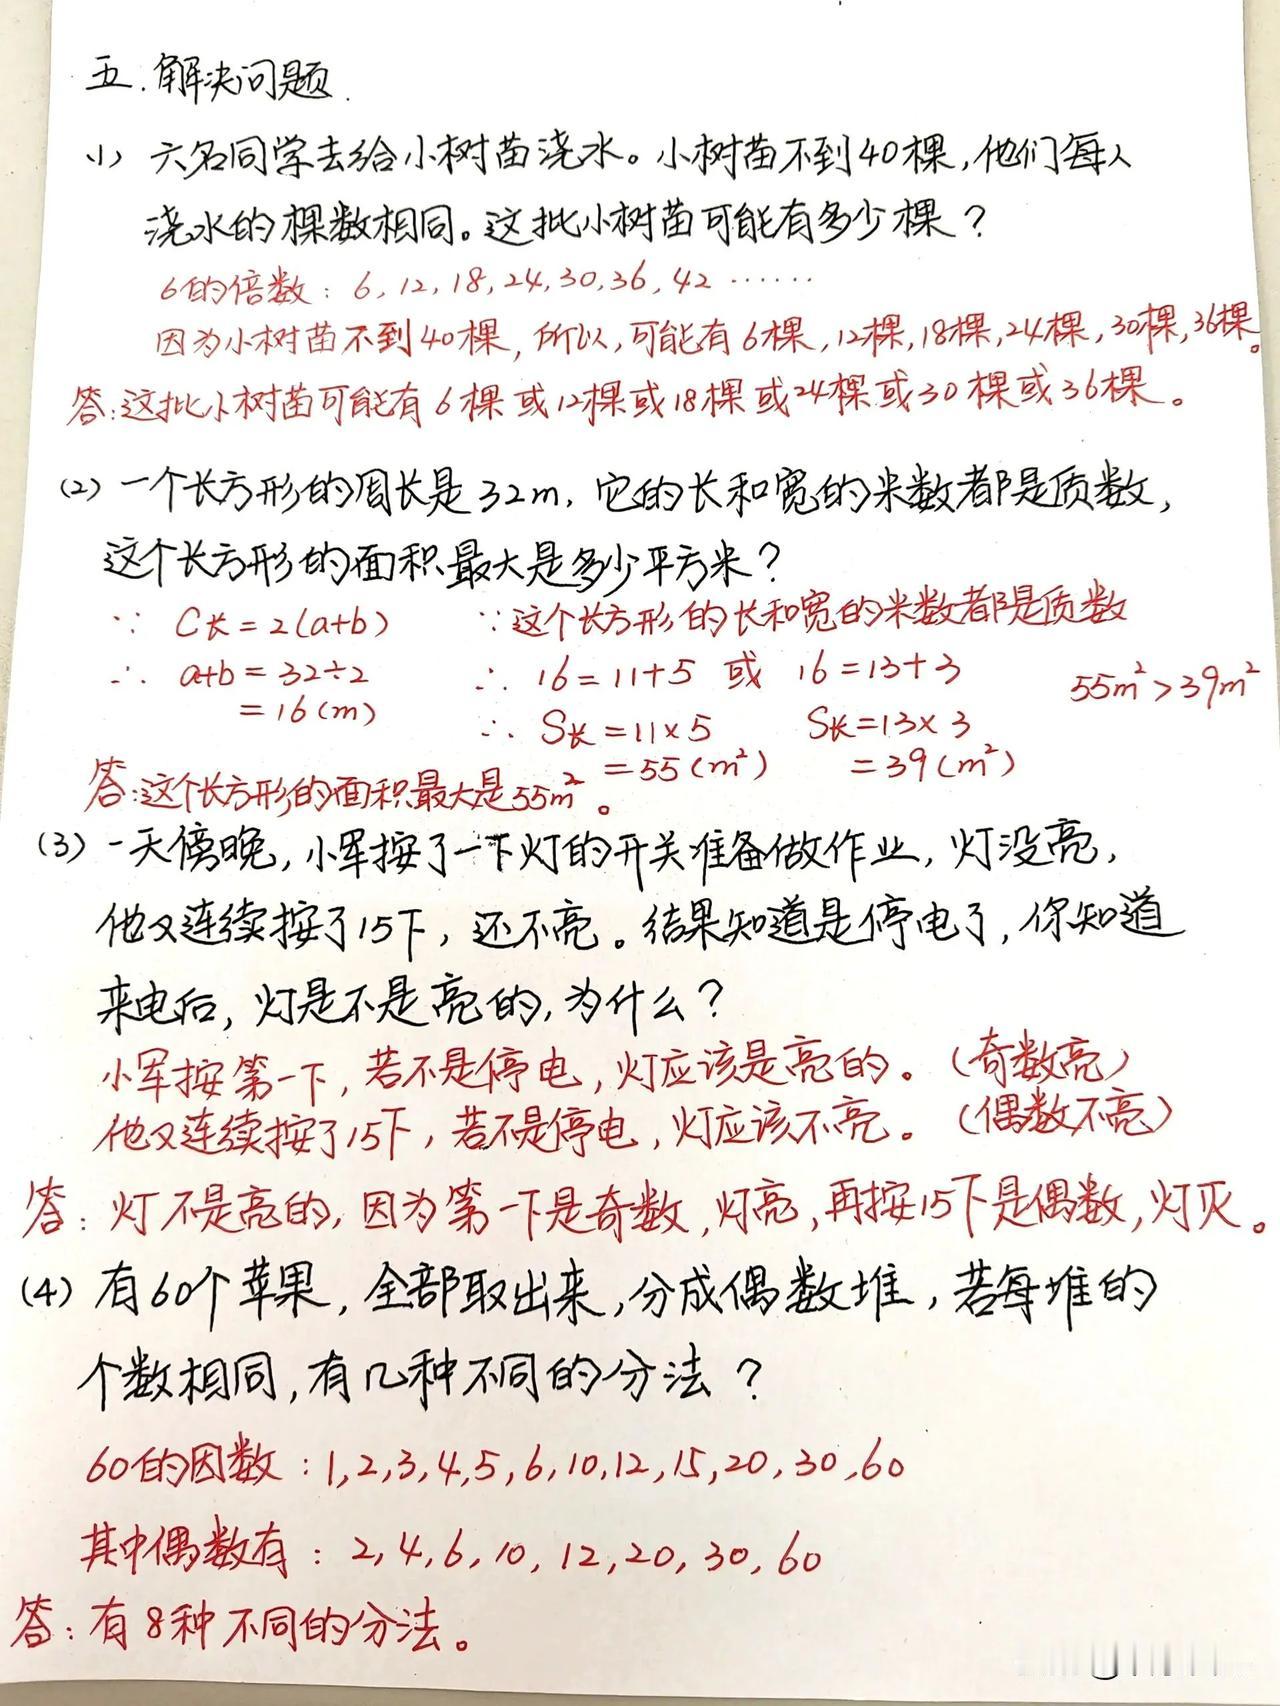 五.解决问题.
(1) 六名同学去给小树苗浇水。小树苗不到40棵,他们每人
浇水的棵数相同。这批小树苗可能有多少棵?
6的倍数:6,12,18,24,30,36,42……
因为小树苗不到40棵,所以,可能有6棵,12棵,18棵,24棵,30棵,36棵。
答:这批小树苗可能有6棵或12棵或18棵或24棵或30棵或36棵。
(2) 一个长方形的周长是32m,它的长和宽的米数都是质数,
这个长方形的面积最大是多少平方米?
∵ C长=2(a+b) ∵这个长方形的长和宽的米数都是质数
∴ a+b=32÷2 ∴ 16=11+5 或 16=13+3 55m²>39m²
=16(m) ∴ S长=11×5 S长=13×3
=55(m²) =39(m²)
答:这个长方形的面积最大是55m²。
(3) 一天傍晚,小军按了一下灯的开关准备做作业,灯没亮,
他又连续按了15下,还不亮。结果知道是停电了,你知道
来电后,灯是不是亮的,为什么?
小军按第一下,若不是停电,灯应该是亮的。(奇数亮)
他又连续按了15下,若不是停电,灯应该不亮。(偶数不亮)
答:灯不是亮的,因为第一下是奇数,灯亮,再按15下是偶数,灯灭。
(4) 有60个苹果,全部取出来,分成偶数堆,若每堆的
个数相同,有几种不同的分法?
60的因数:1,2,3,4,5,6,10,12,15,20,30,60
其中偶数有:2,4,6,10,12,20,30,60
答:有8种不同的分法。